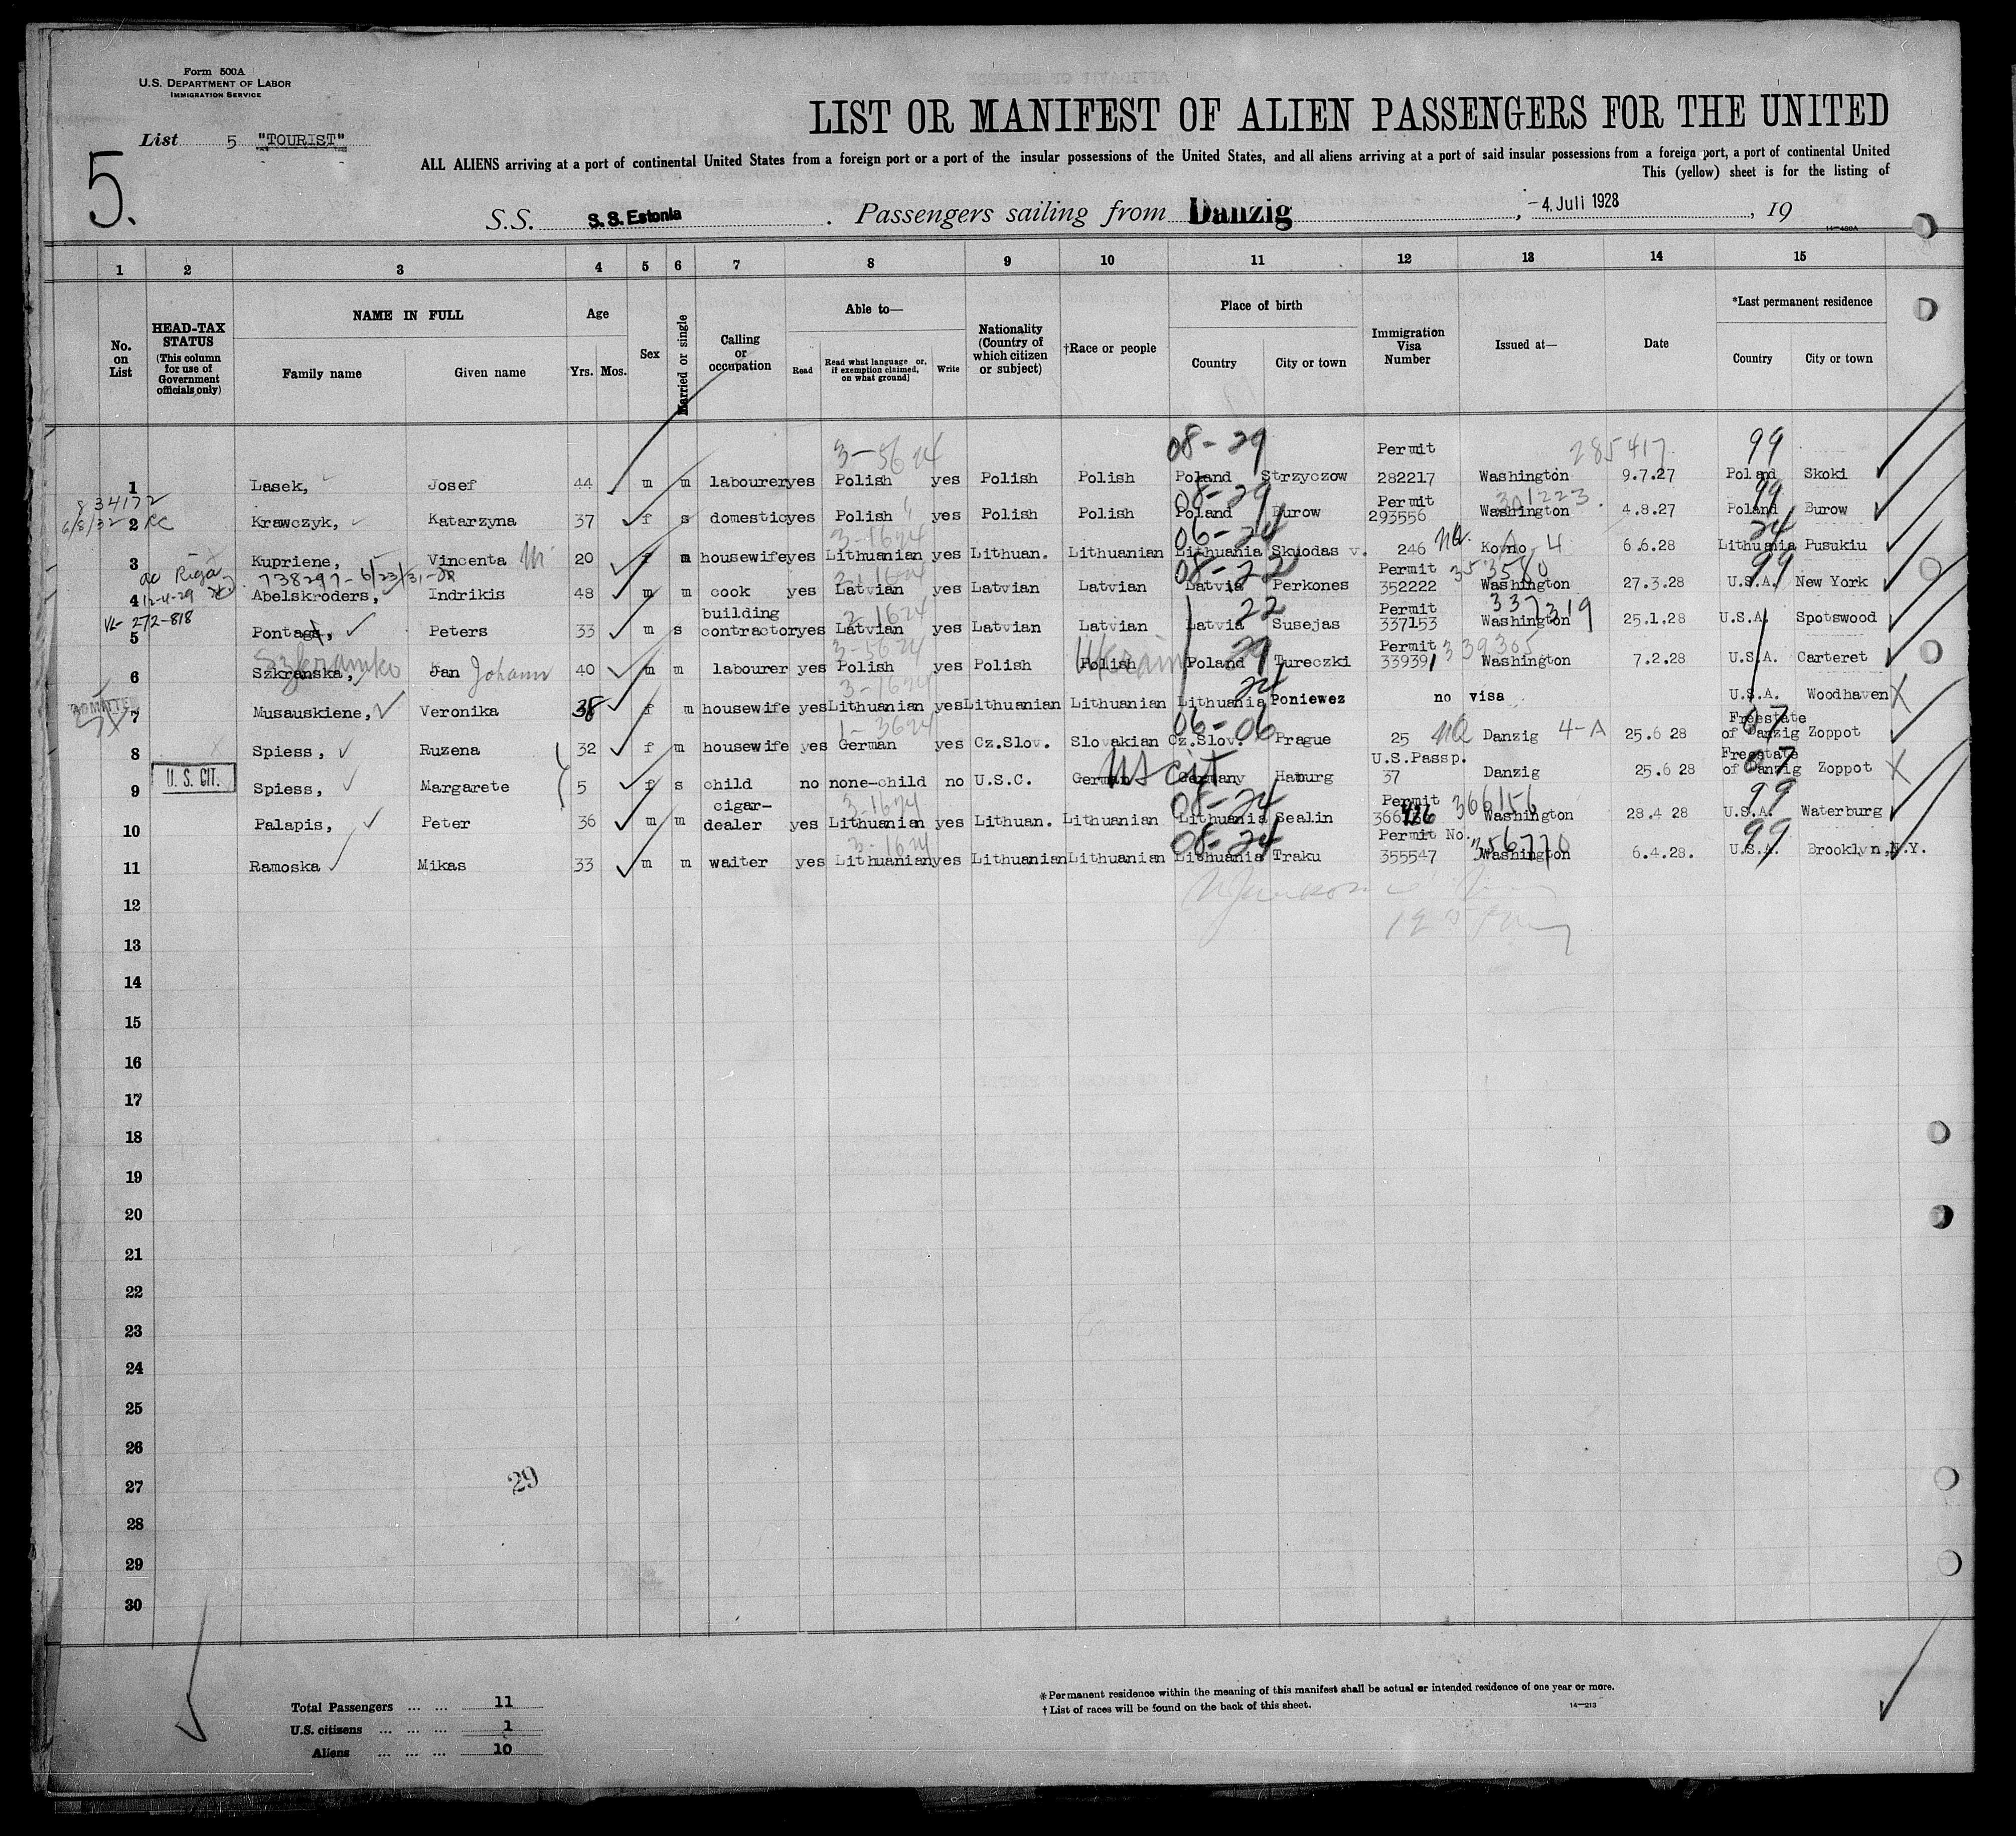 Form 500A
U.S. DEPARTMENT OF LABOR
IMMIGRATION SERVICE
List 5 "TOURIST"
5.
LIST OR MANIFEST OF ALIEN PASSENGERS FOR THE UNITED
ALL ALIENS arriving at a port of continental United States from a foreign port or a port of the insular possessions of the United States, and all aliens arriving at a port of said insular possessions from a foreign port, a port of continental United
This (yellow) sheet is for the listing of
S.S. S.S. Estonia . Passengers sailing from Danzig , -4. Juli 1928 , 19
14—480A
1 2 3 4 5 6 7 8 9 10 11 12 13 14 15
No. on List
HEAD-TAX STATUS (This column for use of Government officials only)
NAME IN FULL
Family name Given name
Age
Yrs. Mos.
Sex
Married or single
Calling or occupation
Able to—
Read Read what language or, if exemption claimed, on what ground] Write
Nationality (Country of which citizen or subject)
†Race or people
Place of birth
Country City or town
Immigration Visa Number
Issued at—
Date
*Last permanent residence
Country City or town
3-5624 08-29 Permit 285417 99
1 Lasek, Josef 44 m m labourer yes Polish yes Polish Polish Poland Strzyczow 282217 Washington 9.7.27 Poland Skoki
834172 08-29 Permit 301223. 99
6/8/32 2 RC Krawczyk, Katarzyna 37 f s domestic yes Polish yes Polish Polish Poland Burow 293556 Washington 4.8.27 Poland Burow
3-1624 06-24 24
3 Kupriene, Vincenta 20 f m housewife yes Lithuanian yes Lithuan. Lithuanian Lithuania Skuodas v. 246 NQ Kovno 4 6.6.28 Lithuania Pusukiu
Riga 738297-6/23/31 3-1624 08-22 Permit 353580 99
4 12-4-29 Abelskroders, Indrikis 48 m m cook yes Latvian yes Latvian Latvian Latvia Perkones 352222 Washington 27.3.28 U.S.A. New York
VL-272-818 building 2-1624 22 Permit 337319
5 Peters 33 m s contractor yes Latvian yes Latvian Latvian Latvia Susejas 337153 Washington 25.1.28 U.S.A. Spotswood
3-5624 29 Permit 339305
6 Szkranska, Jan Johann 40 m m labourer yes Polish yes Polish Polish Poland Tureczki 339391 Washington 7.2.28 U.S.A. Carteret
3-1624 24
7 Musauskiene, Veronika 38 f m housewife yes Lithuanian yes Lithuanian Lithuanian Lithuania Poniewez no visa U.S.A. Woodhaven X
1-3624 06-06 Freestate 07
8 Spiess, Ruzena 32 f m housewife yes German yes Cz.Slov. Slovakian Cz.Slov. Prague 25 NQ Danzig 4-A 25.6 28 of Danzig Zoppot
U. S. CIT. US cit U.S.Passp. Freestate 07
9 Spiess, Margarete 5 f s child no none-child no U.S.C. German Germany Hamurg 37 Danzig 25.6 28 of Danzig Zoppot X
cigar- 3-1624 08-24 Permit 366156 99
10 Palapis, Peter 36 m m dealer yes Lithuanian yes Lithuan. Lithuanian Lithuania Sealin Washington 28.4 28 U.S.A. Waterburg
3-1624 08-24 Permit No. 356770 99
11 Ramoska Mikas 33 m m waiter yes Lithuanian yes Lithuanian Lithuanian Lithuania Traku 355547 Washington 6.4.28. U.S.A. Brooklyn,N.Y.
12
13
14
15
16
17
18
19
20
21
22
23
24
25
26
27 29
28
29
30
Total Passengers ... ... 11
U.S. citizens ... ... ... 1
Aliens ... ... ... 10
*Permanent residence within the meaning of this manifest shall be actual or intended residence of one year or more.
† List of races will be found on the back of this sheet. 14—213